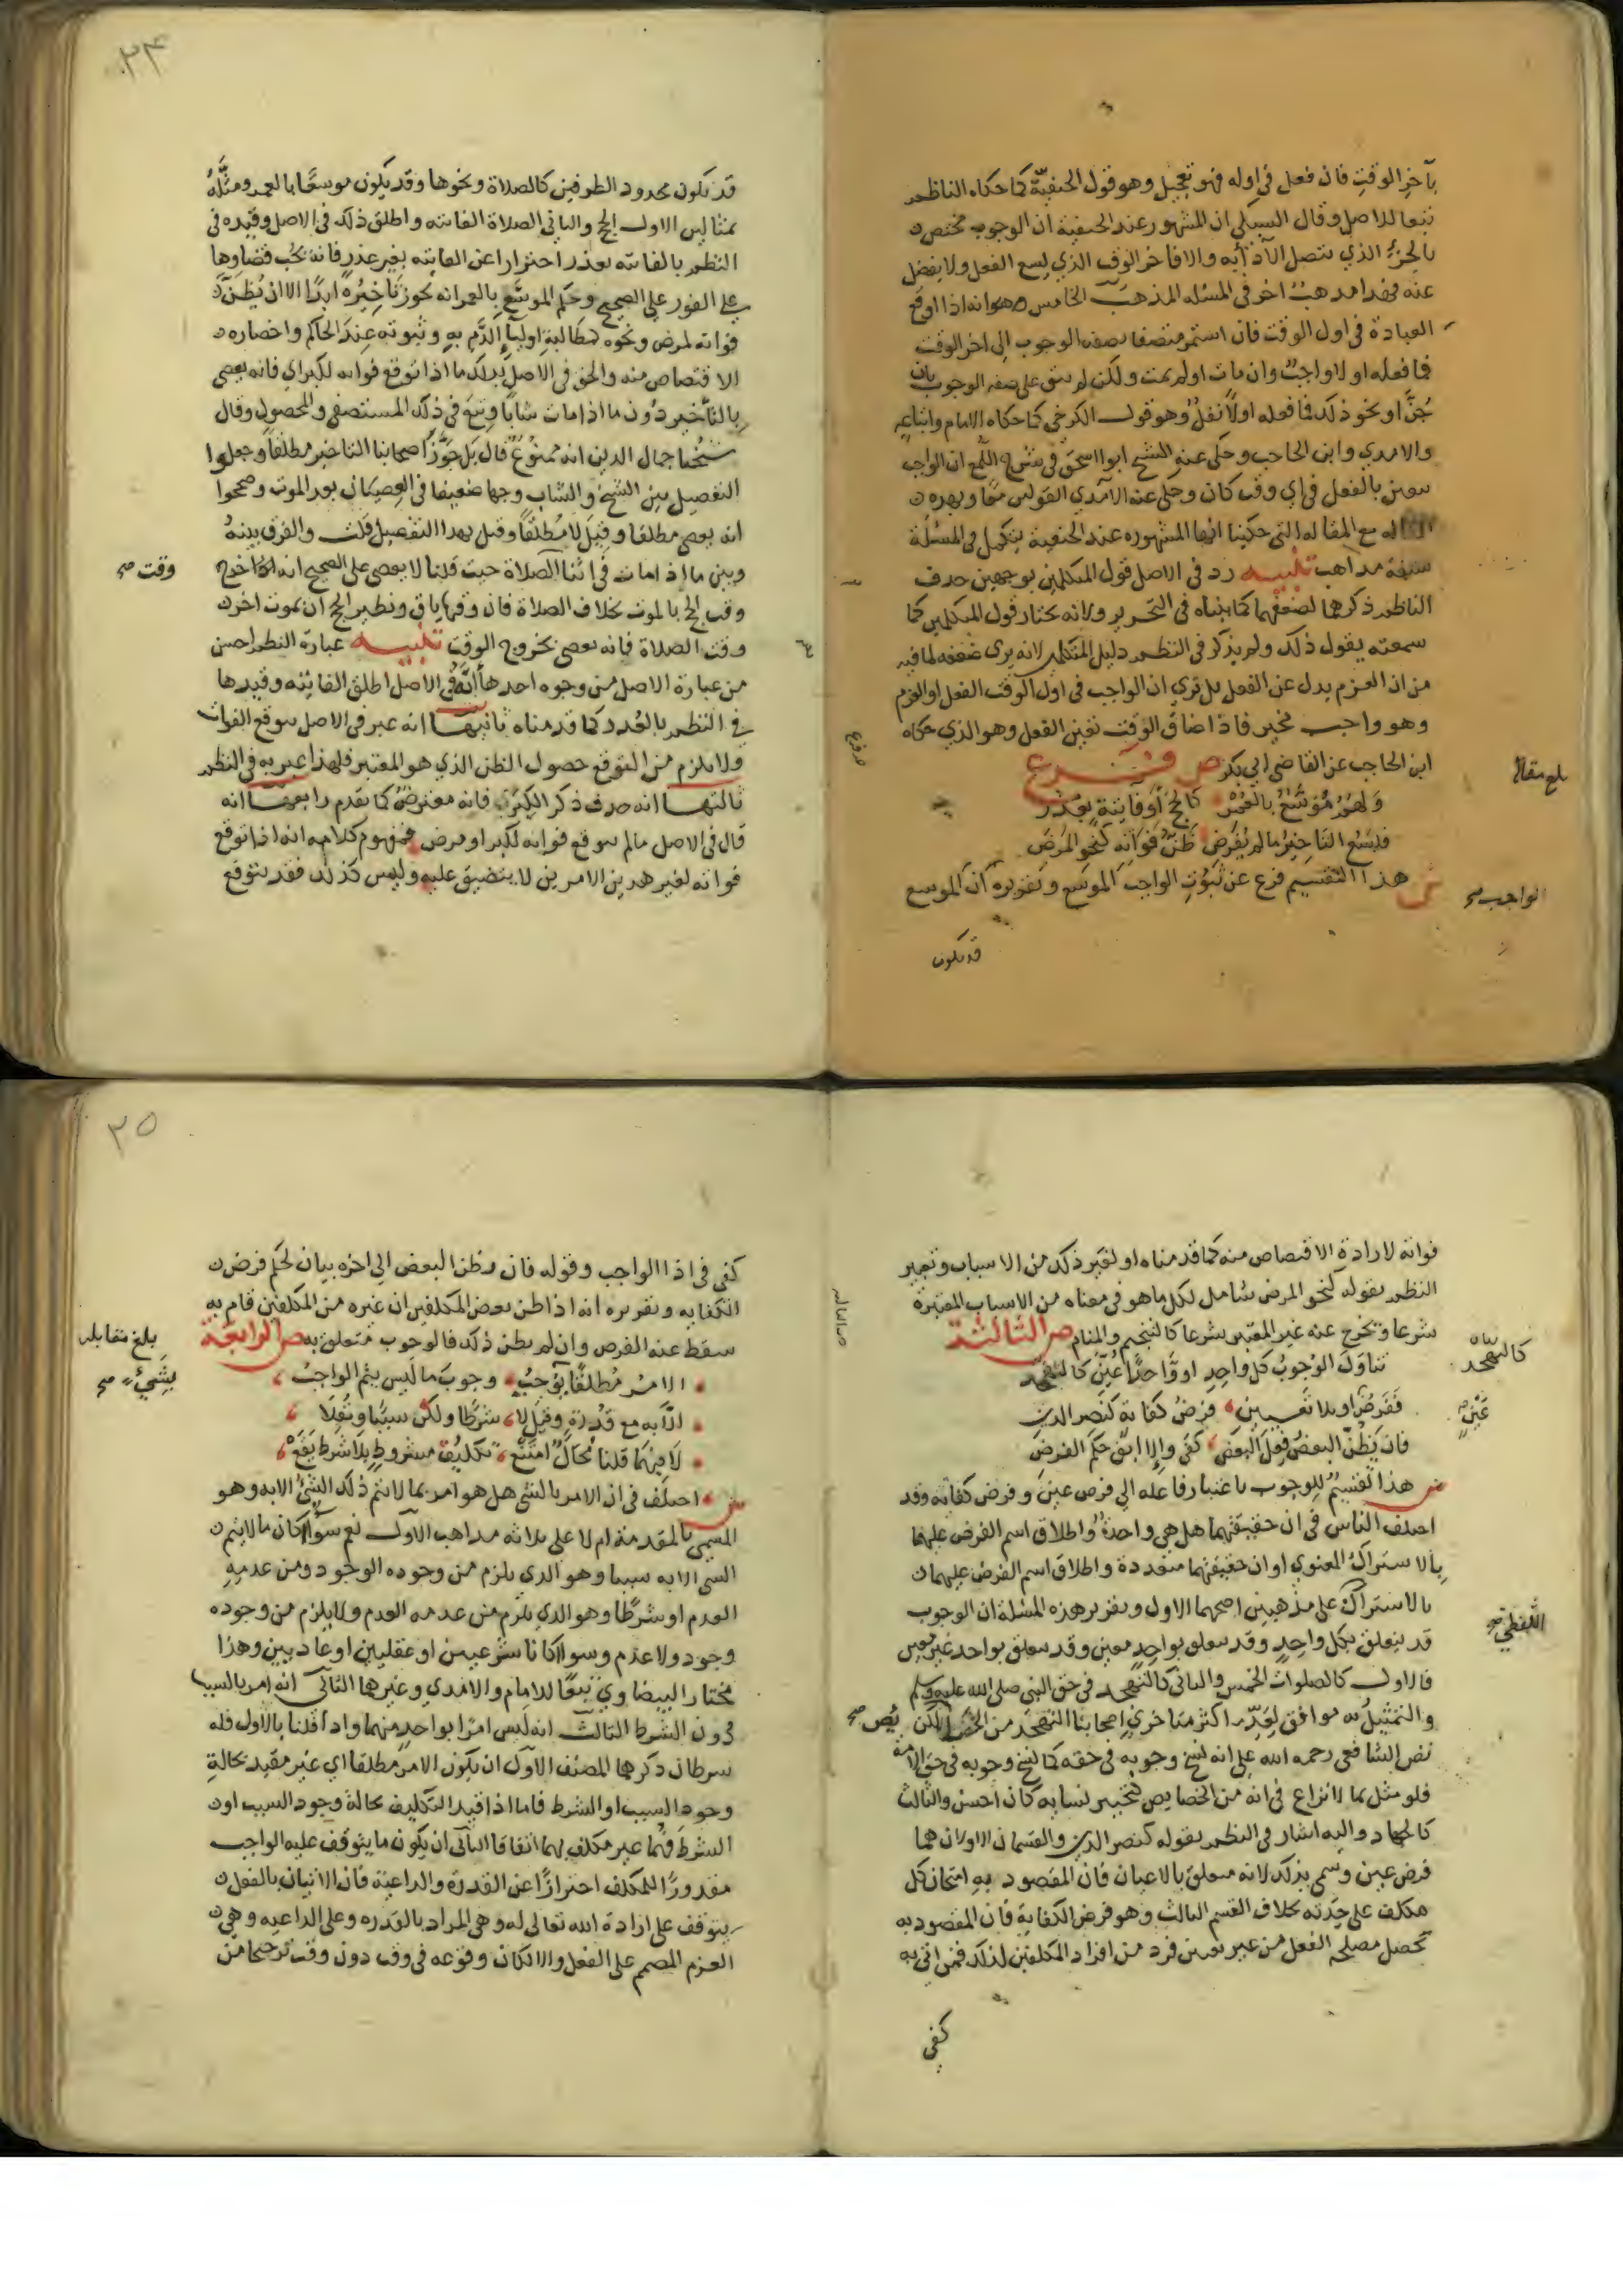 بآخر الوقت فان فعل في اوله فهو تعجيل وهو قول الحنفية كما حكاه الناظم
تبعا للاصل وقال السبكي ان المشهور عند الحنفية ان الوجوب مختص
بالجزء الذي يتصل الاداء به والا فاخر الوقت الذي يسع الفعل ولا يفضل
عنه فهذا مذهب اخر في المسئله المذهب الخامس وهو انه اذا اوقع
العبادة في اول الوقت فان استمر متصفا بصفه الوجوب الى اخر الوقت
فما فعله اولا واجب وان مات او لم يمت ولكن لم يبق على صفه الوجوب بان
جن او نحو ذلك فما فعله اولا نفل وهو قول الكرخي كما حكاه الامام واتباعه
والامدي وابن الحاجب وحكى عنه الشيخ ابو اسحق في شرح اللمع ان الواجب
يتعين بالفعل في اي وقت كان وحكى عنه الآمدي القولين معا وبهذه
المقاله مع المقاله التي حكينا انها المشهوره عند الحنفية يتكمل في المسئلة
سبعة مذاهب تنبيه رد في الاصل قول المتكلمين بوجهين حذف
الناظم ذكرهما لضعفهما كما بيناه في التحرير ولانه يختار قول المتكلمين كما
سمعته يقول ذلك ولم يذكر في النظم دليل المتكلمين لانه يرى ضعفه لما فيه
من ان العزم بدل عن الفعل بل نرى ان الواجب في اول الوقت الفعل او العزم
وهو واجب مخير فاذا ضاق الوقت تعين الفعل وهو الذي حكاه
ابن الحاجب عن القاضي ابي بكر ص فرع
بلغ مقابلة
وهو موسع بالعمر كالحج او فايتة بعذر
فليسع التاخير ما لم يفرض ظن فواته كنحو المرض
ش هذا التقسيم فرع عن ثبوت الواجب الموسع وتقريره ان الموسع
الواجب صح
قد يكون
٣٤
قد يكون محدود الطرفين كالصلاة ونحوها وقد يكون موسعا بالعمر ومثله
بمثالين الاول الحج والثاني الصلاة الفائته واطلق ذلك في الاصل وقيده في
النظم بالفائته بعذر احترازا عن الفايته بغير عذر فانه يجب قضاوها
على الفور على الصحيح وحكم الموسع بالعمر انه يجوز تاخيره ابدا الا ان يظن
فواته لمرض ونحوه كمطالبة اوليآء الدم به وثبوته عند الحاكم واحضاره
الاقتصاص منه والحق في الاصل بذلك ما اذا توقع فواته لكبر اي فانه يعصي
بالتأخير دون ما اذا مات شابا وتبع في ذلك المستصفى والمحصول وقال
شيخنا جمال الدين انه ممنوع قال بل جوز اصحابنا التاخير مطلقا وجعلوا
التفصيل بين الشيخ والشاب وجها ضعيفا في العصيان بعد الموت وصححوا
انه يعصي مطلقا وقيل لا مطلقا وقيل بهذا التفصيل قلت والفرق بينه
وبين ما اذا مات في اثنا الصلاة حيث قلنا لا يعصي على الصحيح انه اخرج
وقت صح
وقت الحج بالموت بخلاف الصلاة فان وقتها باق ونظير الحج ان يموت اخر
وقت الصلاة فانه يعصي بخروج الوقت تنبيه عبارة النظم احسن
من عبارة الاصل من وجوه احدها أنه في الاصل اطلق الفايته وقيدها
في النظم بالعذر كما قدمناه ثانيها انه عبر في الاصل بتوقع الفوات
ولا يلزم من التوقع حصول الظن الذي هو المعتبر فلهذا عبر به في النظم
ثالثها انه حذف ذكر الكبر فانه معترض كما تقدم رابعها انه
قال في الاصل ما لم يتوقع فواته لكبر او مرض فمفهوم كلامه انه اذا توقع
فواته لغير هذين الامرين لا يتضيق عليه وليس كذلك فقد يتوقع
فواته لارادة الاقتصاص منه كما قدمناه او لغير ذلك من الاسباب وتعبير
النظم بقوله كنحو المرض شامل لكل ما هو في معناه من الاسباب المعتبرة
شرعا ويخرج عنه غير المعتبر شرعا كالتنجيم والمنام ص الثالثة
تناول الوجوب كل واحد او واحدا عين كالتهجد
كالتهجد
ففرض او بلا تعيين فرض كفاية كنصر الدين
عين صح
فان يظن البعض فعل البعض كفى والا ابق حكم الفرض
ش هذا تقسيم للوجوب باعتبار فاعله الى فرض عين وفرض كفايه وقد
اختلف الناس في ان حقيقتهما هل هي واحدة واطلاق اسم الفرض عليهما
بالاشتراك المعنوي او ان حقيقتهما متعددة واطلاق اسم الفرض عليهما
بالاشتراك على مذهبين اصحهما الاول وتقرير هذه المسئلة ان الوجوب
اللفظي صح
قد يتعلق بكل واحد وقد يتعلق بواحد معين وقد يتعلق بواحد غير معين
فالاول كالصلوات الخمس والثاني كالتهجد في حق النبي صلى الله عليه وسلم
والتمثيل به موافق لعد اكثر متاخري اصحابنا التهجد من الخصايص لكن
يص صح
نص الشافعي رحمه الله على انه نسخ وجوبه في حقه كما نسخ وجوبه في حق الامة
فلو مثل بما لا نزاع في انه من الخصايص كتخيير نسايه كان احسن والثالث
كالجهاد واليه اشار في النظم بقوله كنصر الدين والقسمان الاولان هما
فرض عين وسمي بذلك لانه متعلق بالاعيان فان المقصود به امتحان كل
مكلف على حدته بخلاف القسم الثالث وهو فرض الكفاية فان المقصود به
تحصل مصلحه الفعل من غير تعيين فرد من افراد المكلفين لذلك فمن اتى به
كفى
٣٥
كفى في اذا الواجب وقوله فان يظن البعض الى اخره بيان لحكم فرض
الكفايه وتقريره انه اذا ظن بعض المكلفين ان غيره من المكلفين قام به
سقط عنه الفرض وان لم يظن ذلك فالوجوب متعلق به ص الرابعة
بلغ مقابله
الامر مطلقا بوجب وجوب ما ليس يتم الواجب
بشيء صح
الا به مع قدرة وقيل لا شرطا ولكن سببا ونقلا
لا فيهما قلنا محال امتنع تكليف مشروط بلا شرط يقع
ش اختلف في ان الامر بالشي هل هو امر بما لا يتم ذلك الشيء الا به وهو
المسمى بالمقدمة ام لا على ثلاثه مذاهب الاول نعم سوآ كان ما لا يتم
الشي الا به سببا وهو الذي يلزم من وجوده الوجود ومن عدمه
العدم او شرطا وهو الذي يلزم من عدمه العدم ولا يلزم من وجوده
وجود ولا عدم وسوا كانا شرعيين او عقليين او عاديين وهذا
مختار البيضاوي تبعا للامام والامدي وغيرهما الثاني انه امر بالسبب
دون الشرط الثالث انه ليس امرا بواحد منهما واذا قلنا بالاول فله
شرطان ذكرهما المصنف الاول ان يكون الامر مطلقا اي غير مقيد بحالة
وجود السبب او الشرط فاما اذا قيد التكليف بحالة وجود السبب او
الشرط فهما غير مكلف بهما اتفاقا الثاني ان يكون ما يتوقف عليه الواجب
مقدورا للمكلف احترازا عن القدرة والداعية فان الاتيان بالفعل
يتوقف على ارادة الله تعالى له وهي المراد بالقدره وعلى الداعيه وهي
العزم المصمم على الفعل والا لكان وقوعه في وقت دون وقت ترجيحا من